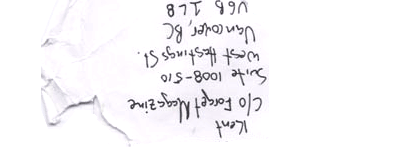 Kent
c/o Forget Magazine
Suite 1008-510
West Hastings St.
Vancouver, BC
V6B 1L8